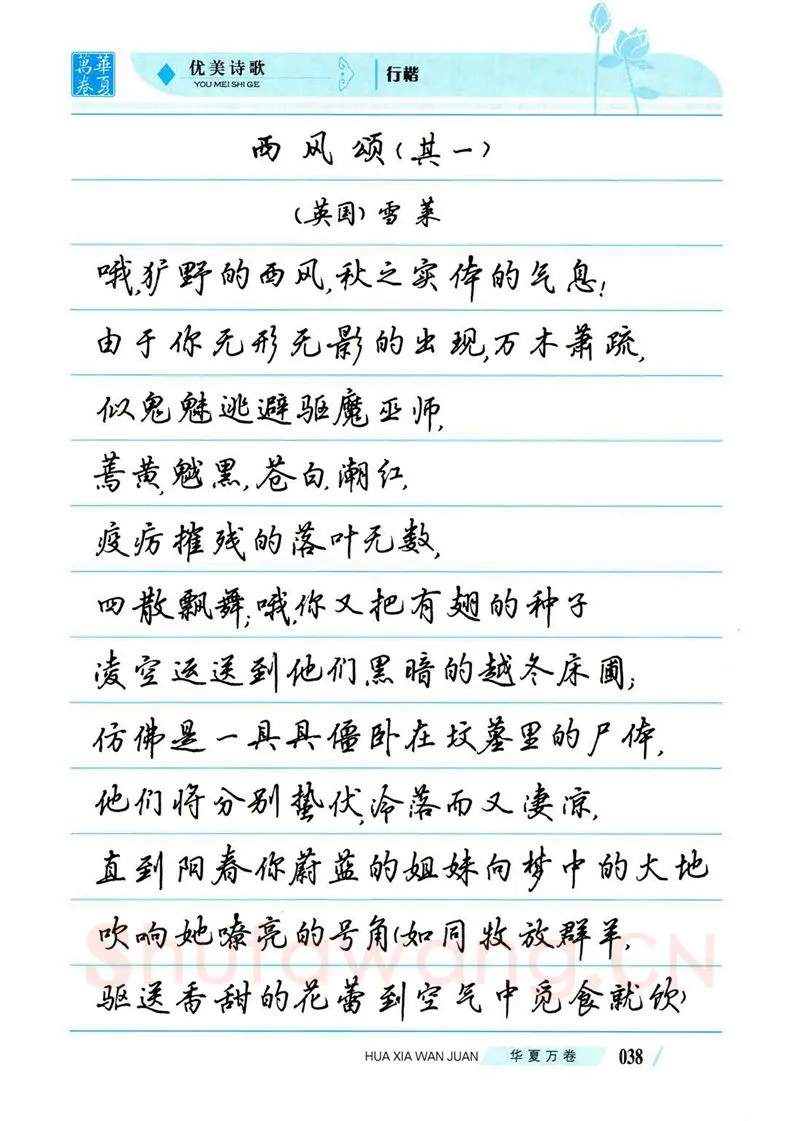 萬卷 華夏
优美诗歌
YOU MEI SHI GE
行楷
西风颂(其一)
(英国)雪莱
哦,犷野的西风,秋之实体的气息!
由于你无形无影的出现,万木萧疏,
似鬼魅逃避驱魔巫师,
蔫黄,魆黑,苍白,潮红,
疫疠摧残的落叶无数,
四散飘舞;哦,你又把有翅的种子
凌空运送到他们黑暗的越冬床圃;
仿佛是一具具僵卧在坟墓里的尸体,
他们将分别蛰伏,冷落而又凄凉,
直到阳春你蔚蓝的姐妹向梦中的大地
吹响她嘹亮的号角(如同牧放群羊,
驱送香甜的花蕾到空气中觅食就饮)
Shufawang.CN
HUA XIA WAN JUAN
华夏万卷
038